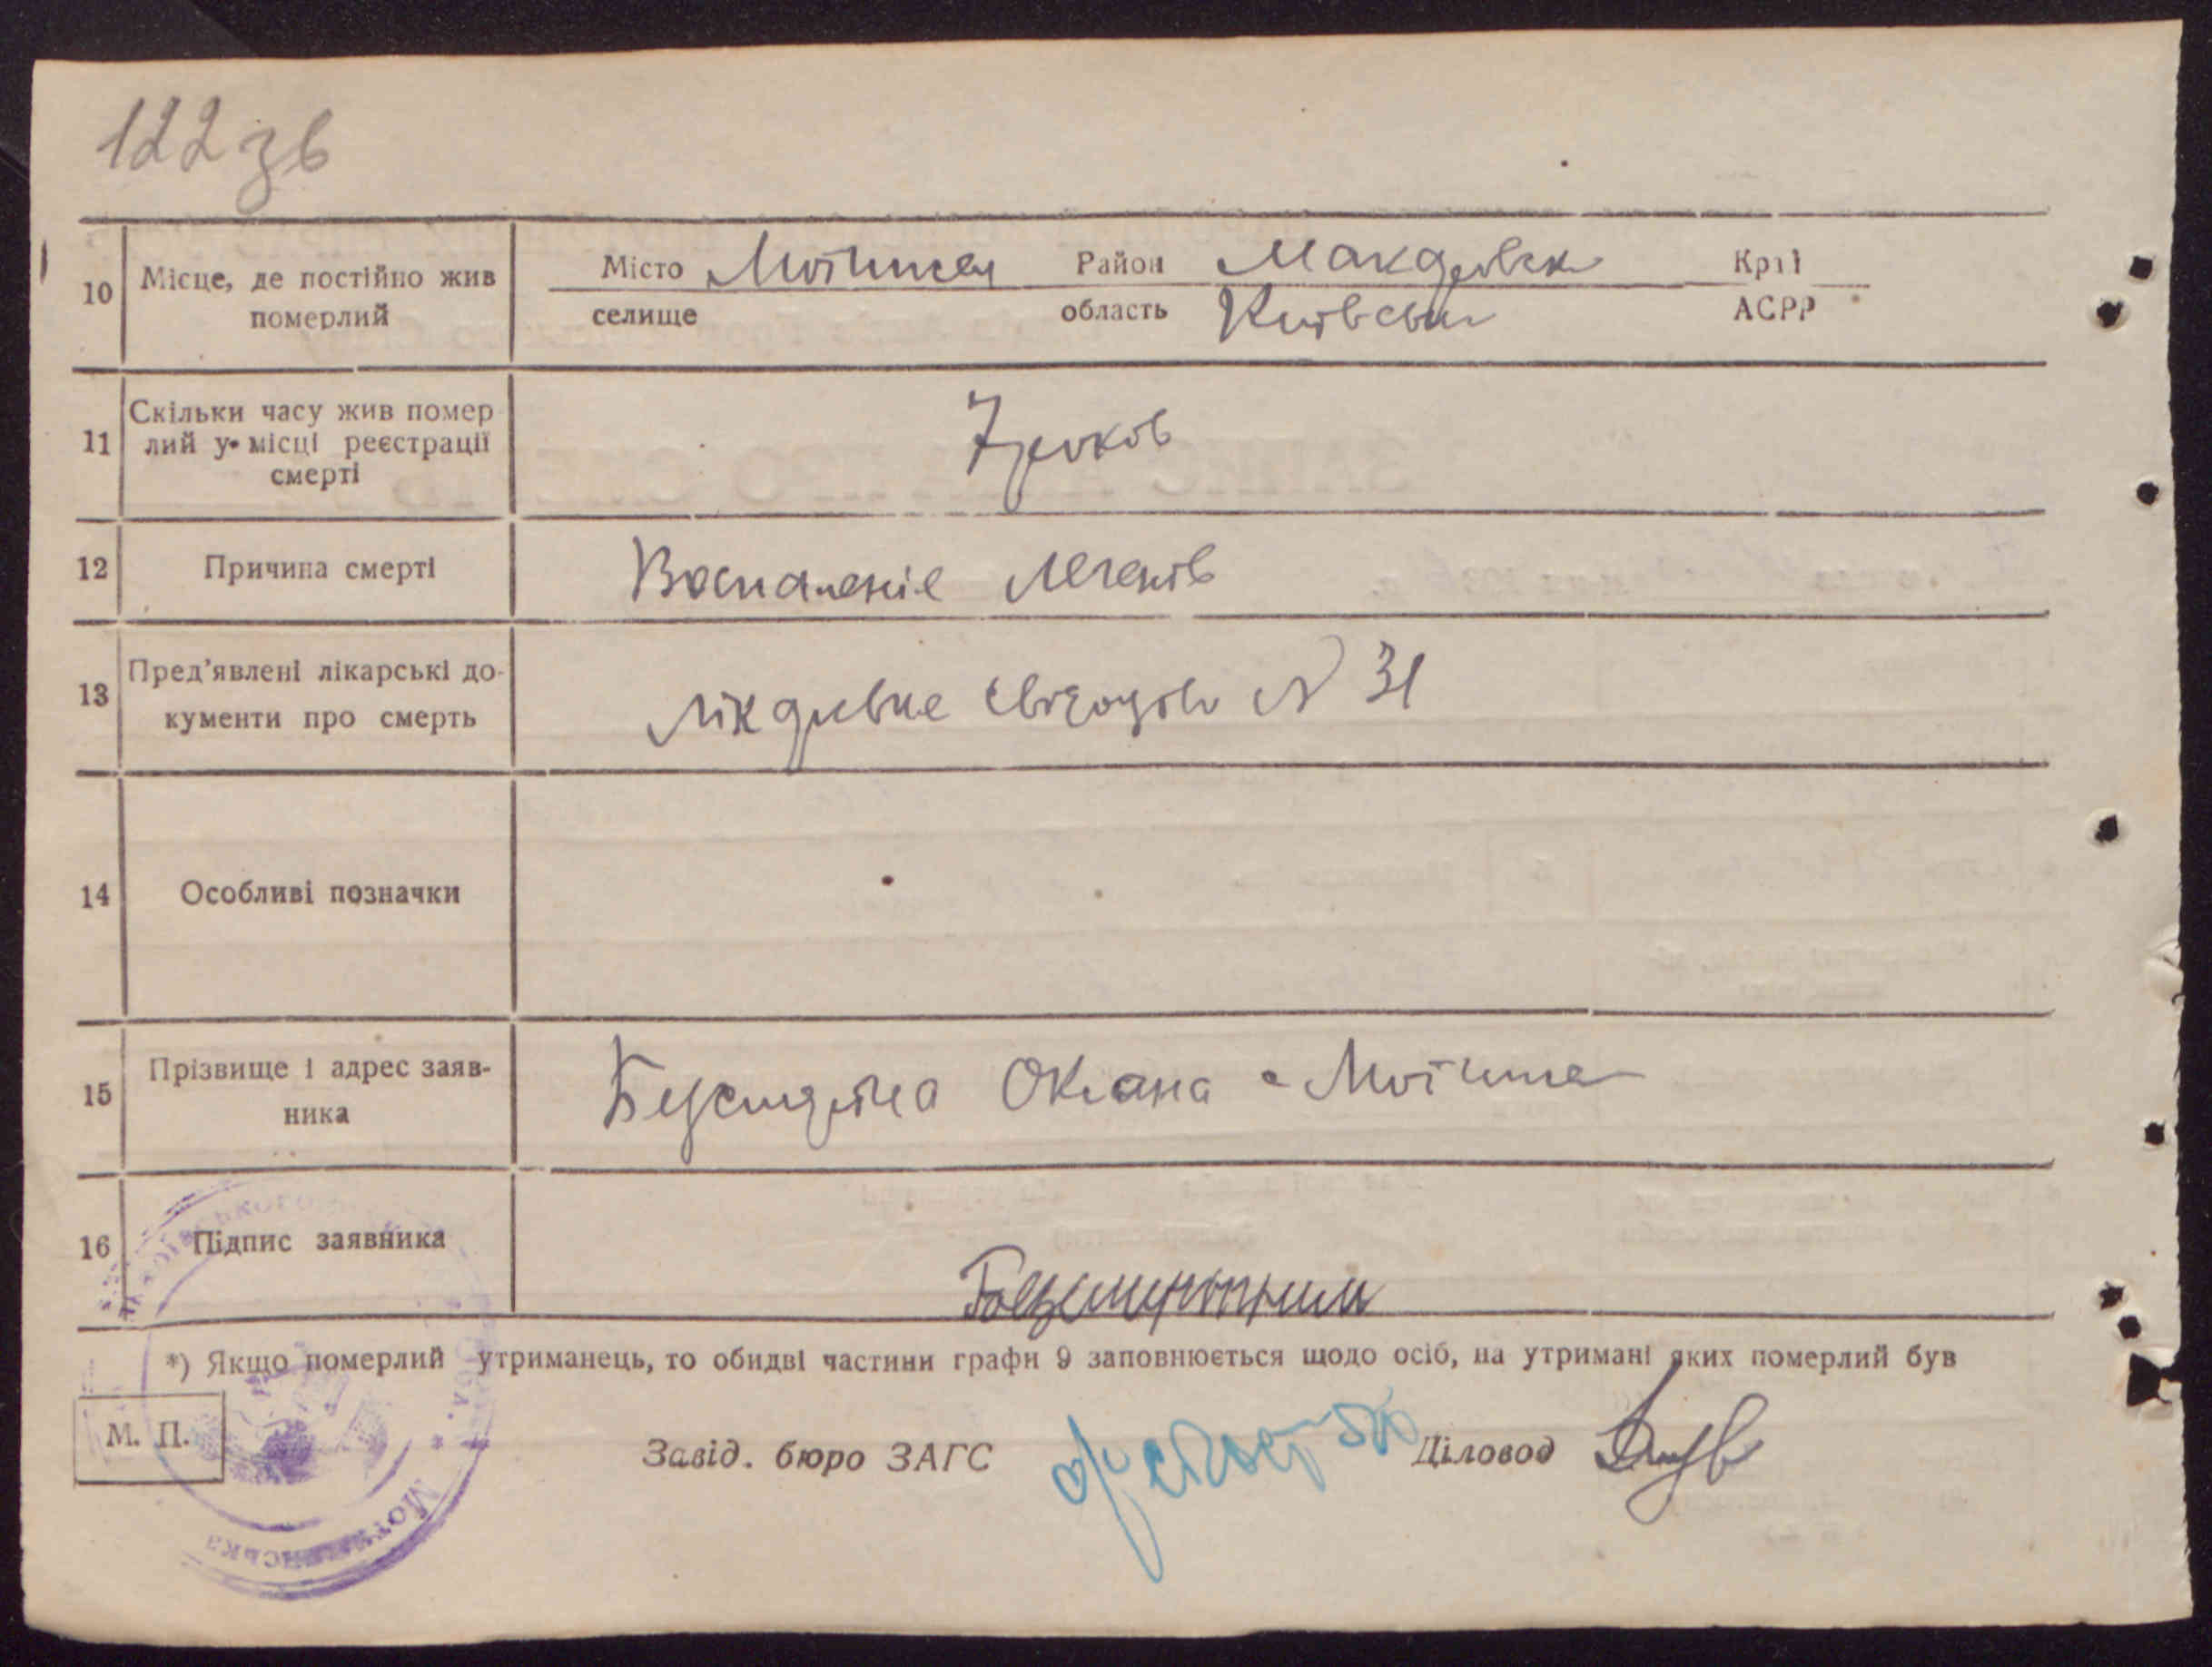 122 зв
10 Місце, де постійно жив померлий
Місто Мотижен Район Макаровск Край
селище область Київська АСРР
11 Скільки часу жив помер
лий у місці реєстрації
смерті
7 роков
12 Причина смерті Воспаленіє Легенів
13 Пред’явлені лікарські до-
кументи про смерть
Лікаревне свідоцтво N 31
14 Особливі позначки
15 Прізвище і адрес заяв-
ника
Оксана с Мотиже
16 Підпис заявника
*) Якщо померлий утриманець, то обидві частини графи 9 заповнюється щодо осіб, на утримані яких померлий був
М. П.
Завід. бюро ЗАГС Діловод